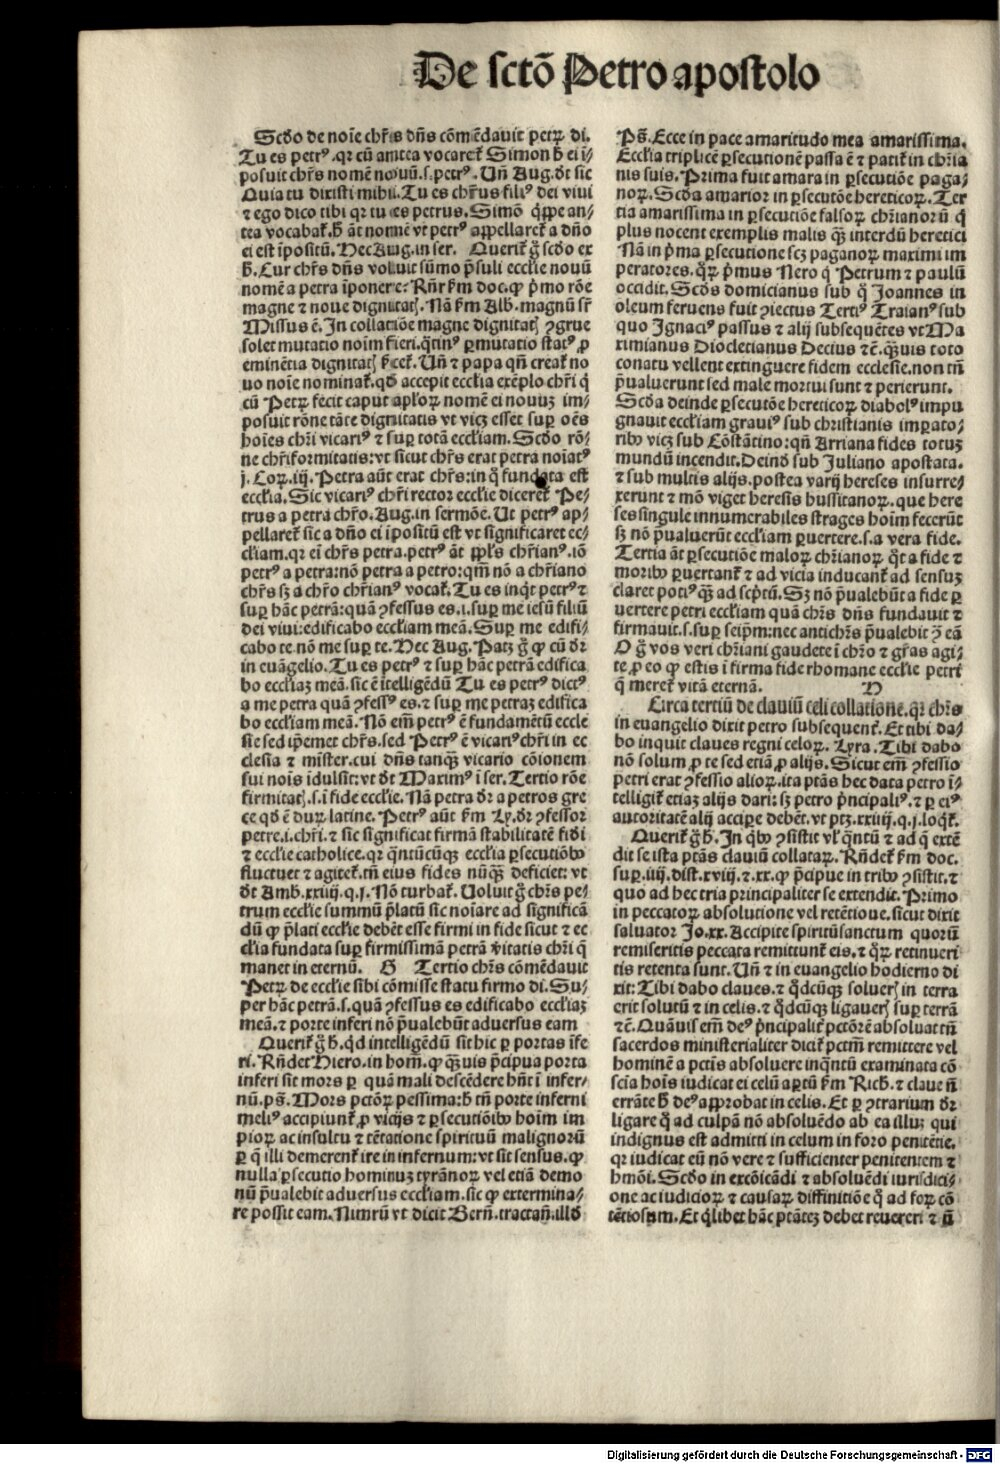 De sctō Petro apostolo
Scđo de noīe chr̄s dn̄s cōmēdavit petrꝝ di.
Tu es petrꝰ. qr cū antea vocaret̄ Simon ħ ei ī⸗
posuit chr̄s nomē novū. s. petrꝰ. Un̄ Aug. dt sic
Quia tu dixisti mihi. Tu es chr̄us filiꝰ dei vivi
⁊ ego dico tibi qr tu es petrus. Simō qͥppe an⸗
tea vocabat̄. ħ āt nomē vt petrꝰ appellaret̄ a dño
ei est īpositū. Hec Aug. in ser. Querit̄ g̊ scđo ex
ħ. Cur chr̄s dn̄s voluit sūmo p̄suli ecclie novū
nomē a petra īponere: Rn̄r km̄ doc. ꝙ pͥmo rōe
magne ⁊ noue dignitatꝭ. Nā km̄ Alb. magnū sr̄
Missus ē. In collatiōe magne dignitatꝭ ꝯgrue
solet mutatio noīm fieri. qͣtinꝰ ꝑmutatio statꝰ ꝓ
eminētia dignitatꝭ Un̄ ⁊ papa qn̄ creat̄ no
vo noīe nominat̄. qđ accepit ecclia exēplo chr̄i qͥ
cū Petrꝝ fecit caput apl̄oꝝ nomē ei novuꝫ im⸗
posuit rōne tāte dignitatis vt vicꝫ esset suꝑ oēs
hoīes chr̄i vicariꝰ ⁊ suꝑ totā eccliam. Scđo rō⸗
ne chr̄iformitatis: vt sicut chr̄s erat petra noīatꝰ
j. Coꝝ. Petra aūt erat chr̄s: in qͣ fundata est
ecclia. Sic vicariꝰ chr̄i rector ecclie diceret̄ Pe⸗
trus a petra chr̄o. Aug. in sermōe. Ut petrꝰ ap⸗
pellaret̄ sic a dño ei īpositū est vt significaret ec⸗
cliam. qr ei chr̄s petra. petrꝰ āt ppl̄s chr̄ianꝰ. iō
petrꝰ a petra: nō petra a petro: qm̄ nō a chr̄iano
chr̄s sꝫ a chr̄o chr̄ianꝰ vocat̄. Tu es inqͥt petrꝰ ⁊
suꝑ hāc petrā: quā ꝯfessus es. i. suꝑ me iesū filiū
dei vivi: edificabo eccliam meā. Suꝑ me edifi⸗
cabo te nō me suꝑ te. Hec Aug. Patꝫ g̊ ꝙ cū dr̄
in euāgelio. Tu es petrꝰ ⁊ suꝑ hāc petrā edifica
bo eccliaꝫ meā. sic ē ītelligēdū Tu es petrꝰ dictꝰ
a me petra quā ꝯfessꝰ es. ⁊ suꝑ me petraꝫ edifica
bo eccliam meā. Nō em̄ petrꝰ ē fundamētū eccle
sie sed ip̄emet chr̄s. sed Petrꝰ ē vicariꝰ chr̄i in ec
clesia ⁊ mister. cui dn̄s tanqͣꝫ vicario cōionem
sui nois īdulsit: vt dt Maximꝰ ī ser. Tertio rōe
firmitatꝭ. s. ī fide ecclie. Nā petra dr̄ a petros gre
ce qđ ē duꝝ latine. Petrꝰ aūt km̄ Ly. dr̄ ꝯfessor
petre. i. chr̄i. ⁊ sic significat firmā stabilitatē fidi
⁊ ecclie catholice. qr qͣntūcūqꝫ ecclia ꝑsecutiōibꝰ
fluctuet ⁊ agitet̄. tn̄ eius fides nūqͣꝫ deficiet: vt
dt Amb. xxiiij. q. j. Nō turbat̄. Voluit g̊ chr̄s pe⸗
trum ecclie summū p̄latū sic noīare ad significā
dū ꝙ p̄lati ecclie debēt esse firmi in fide sicut ⁊ ec
clia fundata suꝑ firmissimā petrā v̄itatis chr̄i qͥ
manet in eternū. G Tertio chr̄s cōmēdavit
Petrꝝ de ecclie sibi cōmisse statu firmo di. Su⸗
per hāc petrā. s. quā ꝯfessus es edificabo eccliaꝫ
meā. ⁊ porte inferi nō p̄ualebūt adversus eam
Querit̄ g̊ ħ. qͥd intelligēdū sit hic ꝑ portas īfe
ri. Rn̄det Hiero. in hom̄. ꝙ qͣꝫuis p̄cipua porta
inferi sit mors ꝑ quā mali descēdere hn̄t ī infer⸗
nū. ps̄. Mors pctōꝝ pessima: ħ tn̄ porte inferni
meliꝰ accipiunt̄ ꝓ vicijs ⁊ ꝑsecutiōibꝰ hoīm im
pioꝝ ac insultu ⁊ tētatione spirituū malignorū
ꝑ qͣ illi demerent̄ ire in infernum: vt sit sensus. ꝙ
nulla ꝑsecutio hominuꝫ tyrānoꝝ vel etiā demo
nū p̄ualebit adversus eccliam. sic ꝙ extermina⸗
re possit eam. Nimrū vt dicit Bern̄. tractan̄. illđ
Ps̄. Ecce in pace amaritudo mea amarissima.
Ecclia triplicē ꝑsecutionē passa ē ⁊ patit̄ in chr̄ia
nis suis. Prima fuit amara in ꝑsecutiōe paga⸗
noꝝ. Scđa amarior in ꝑsecutōe hereticoꝝ. Ter
tia amarissima in ꝑsecutiōe falsoꝝ chr̄ianorū qͥ
plus nocent exemplis malis qͣꝫ interdū heretici
Nā in pͥma ꝑsecutione scꝫ paganoꝝ maximi im
peratores. qͦꝝ pͥmus Nero qͥ Petrum ⁊ paulū
occidit. Scđs domicianus sub qͦ Joannes in
oleum feruens fuit ꝯiectus Tertiꝰ Traianꝰ sub
quo Ignaciꝰ passus ⁊ alij subsequētes vt Ma
ximianus Diocletianus Decius ⁊c̄. qͣꝫuis toto
conatu vellent extinguere fidem ecclesie. non tn̄
p̄ualuerunt sed male mortui sunt ⁊ perierunt.
Scđa deinde ꝑsecutōe hereticoꝝ diabolꝰ impu
gnauit eccliam grauiꝰ sub christianis imꝑato⸗
ribꝰ vicꝫ sub Cōstātino: qn̄ Arriana fides totuꝫ
mundū incendit. Deinđ sub Juliano apostata.
⁊ sub multis alijs. postea varij hereses insurre⸗
xerunt ⁊ mō viget heresis hussitanoꝝ. que here
ses singule innumerabiles strages hoīm fecerūt
sꝫ nō p̄ualuerūt eccliam ꝑuertere. s. a vera fide.
Tertia āt ꝑsecutiōe maloꝝ chr̄ianoꝝ. qͥ a fide ⁊
moribꝰ ꝑuertant̄ ⁊ ad vicia inducant̄ ad sensuꝫ
claret potiꝰ qͣꝫ ad scptū. Sꝫ nō p̄ualebūt a fide ꝑ
vertere petri eccliam quā chr̄s dn̄s fundauit ⁊
firmauit. s. suꝑ seip̄m: nec antichr̄s p̄ualebit ꝯ̄ eā
O g̊ vos veri chr̄iani gaudete ī chr̄o ⁊ gr̄as agi⸗
te ꝓ eo ꝙ estis ī firma fide rhomane ecclie petri
qͣ meret̄ vitā eternā. H
Circa tertiū de clauiū celi collatione. qr chr̄s
in euangelio dixit petro subsequent̄. Et tibi da⸗
bo inquit claves regni celoꝝ. Lyra. Tibi dabo
nō solum ꝓ te sed etiā ꝓ alijs. Sicut em̄ ꝯfessio
petri erat ꝯfessio alioꝝ. ita ptās hec data petro ī⸗
telligit̄ etiaꝫ alijs dari: sꝫ petro pͥncipaliꝰ. ⁊ ꝑ eiꝰ
autoritatē alij acciꝑe debēt. vt ptꝫ. xxiiij. q. j. loqͣt̄.
Querit̄ g̊ ħ. In qͥbꝰ ꝯsistit vl̄ qͣntū ⁊ ad qͣ extē
dit se ista ptās clauiū collataꝝ. Rn̄det̄ km̄ doc.
suꝑ. iiij. dist. xviij. ⁊. xx. ꝙ p̄cipue in tribꝰ ꝯsistit. ⁊
quo ad hec tria principaliter se extendit. Primo
in peccatoꝝ absolutione vel retētioue. sicut dixit
saluator Jo. xx. Accipite spiritūsanctum quorū
remiseritis peccata remittunt̄ eis. ⁊ qͦꝝ retinueri
tis retenta sunt. Un̄ ⁊ in euangelio hodierno di
xit: Tibi dabo claues. ⁊ qͦdcūqꝫ soluerꝭ in terra
erit solutū ⁊ in celis. ⁊ qͦdcūqꝫ ligauerꝭ suꝑ terrā
⁊c̄. Quāuis em̄ deꝰ pͥncipalit̄ pctōrē absoluat tn̄
sacerdos ministerialiter dicit̄ pctm̄ remittere vel
hominē a pctīs absoluere inqͣntū examinata cō
scia hoīs iudicat ei celū aꝑtū km̄ Rich. ⁊ claue n̄
errāte ħ deꝰ approbat in celis. Et ꝑ ꝯtrarium dr̄
ligare qͦ ad culpā nō absoluēdo ab ea illuꝫ qui
indignus est admitti in celum in foro penitētie.
qr iudicat eū nō vere ⁊ sufficienter penitentem ⁊
hmōi. Scđo in excōicādi ⁊ absoluēdi iurisdicti⸗
one ac iudicioꝝ ⁊ causaꝝ diffinitiōe qͦ ad foꝝ cō
tētiosum. Et qͥlibet hāc ptātēꝫ debet revereri ⁊ n̄
Digitalisierung gefördert durch die Deutsche Forschungsgemeinschaft - DFG